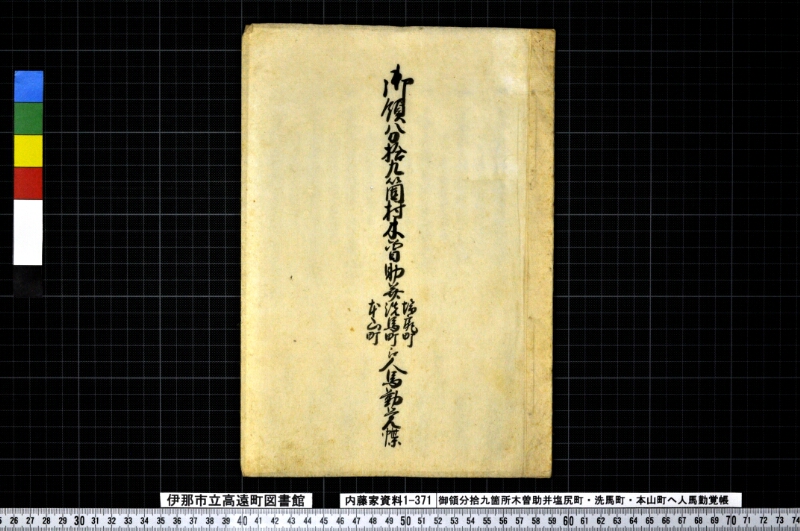 御領分拾九箇村木曽助并
塩尻町
洗馬町
本山町
江人馬勤覚帳
伊那市立高遠町図書館
内藤家資料1-371
御領分拾九箇所木曽助并塩尻町・洗馬町・本山町へ人馬勤覚帳
5 26 27 28 29 30 31 32 33 34 35 36 37 38 39 40 41 42 43 44 45 46 47 48 49 50 51 52 53 54 55 56 57 58 59 60 61 62 63 64 65 66 67 68 69 70 71 72 73 74